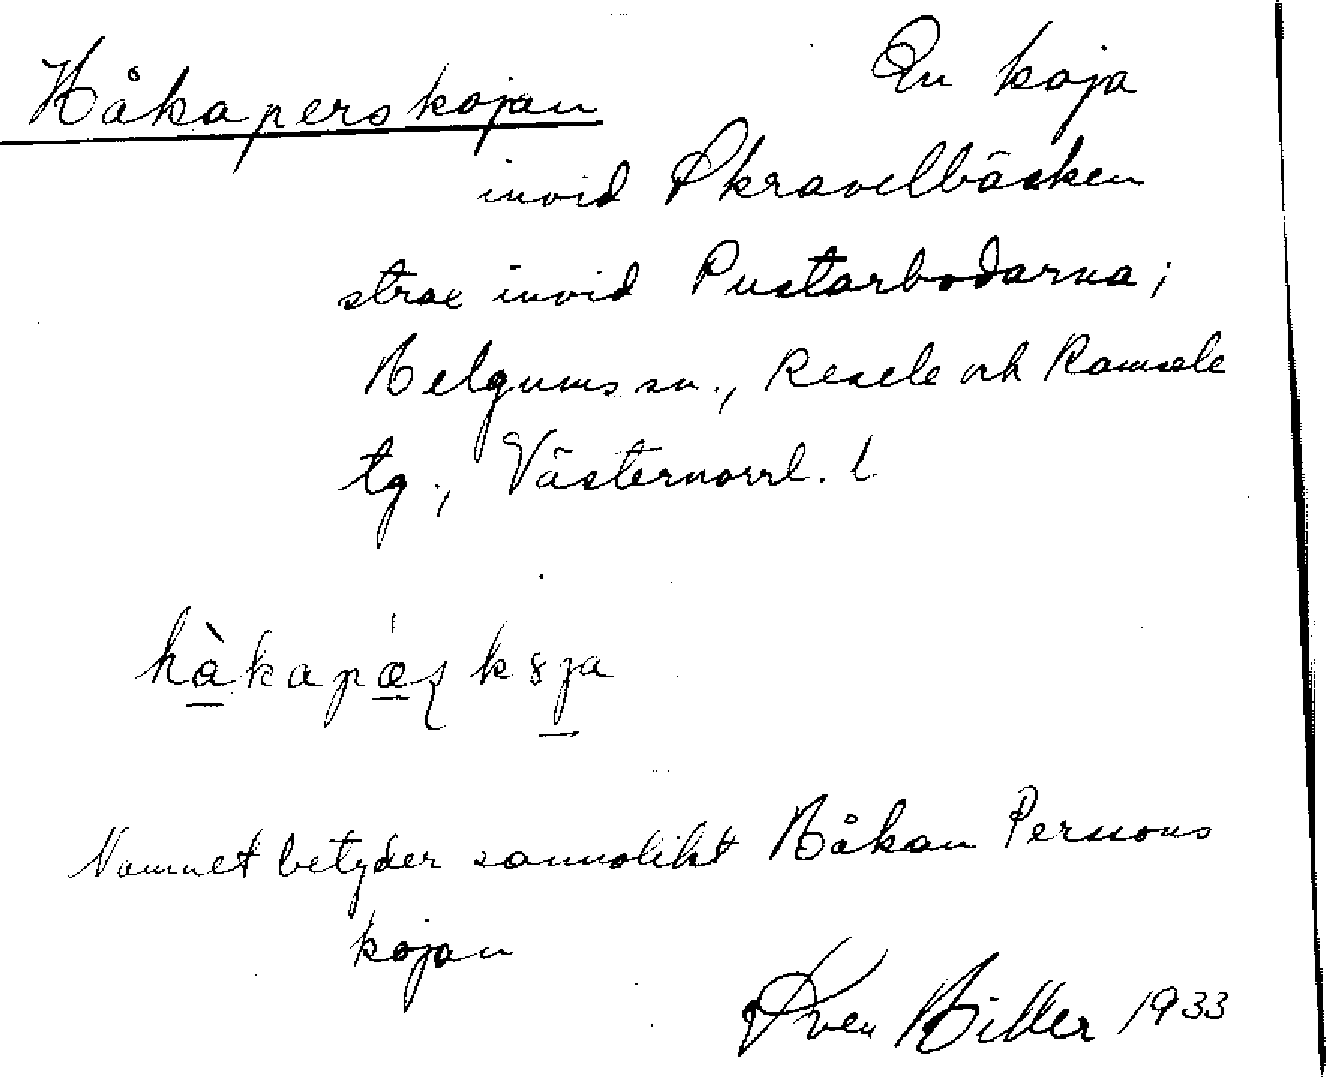 Håkaperskojan En koja
invid Skravelbäcken
strax invid Pustarbodarna;
Helgums sn., Resele och Ramsele
tg., Västernorrl. l
Namnet betyder sannolikt Håkan Persons
kojan
Sven Hiller 1933